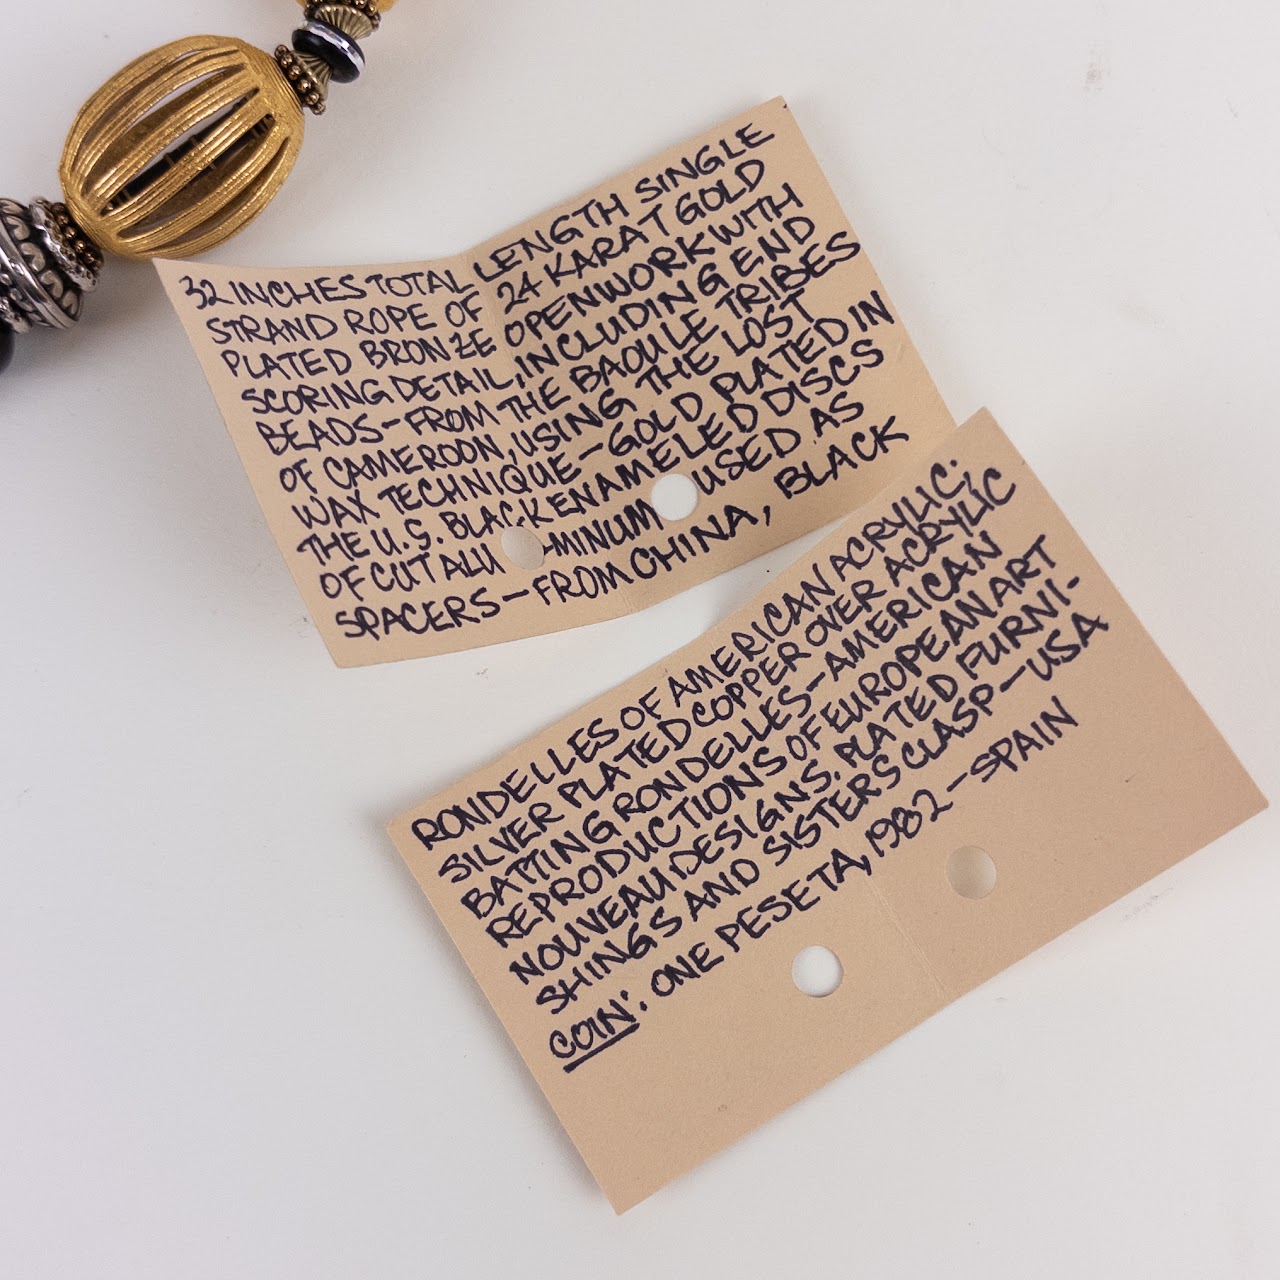 32 INCHES TOTAL LENGTH SINGLE
STRAND ROPE OF 24 KARAT GOLD
PLATED BRONZE OPENWORK WITH
SCORING DETAIL, INCLUDING END
BEADS—FROM THE BAOULE TRIBES
OF CAMEROON, USING THE LOST
WAX TECHNIQUE—GOLD PLATED IN
THE U.S. BLACK ENAMELED DISCS
OF CUT ALU-MINUM USED AS
SPACERS—FROM CHINA, BLACK
RONDELLES OF AMERICAN ACRYLIC;
SILVER PLATED COPPER OVER ACRYLIC
BATTING RONDELLES—AMERICAN
REPRODUCTIONS OF EUROPEAN ART
NOUVEAU DESIGNS. PLATED FURNI-
SHINGS AND SISTERS CLASP—USA
COIN: ONE PESETA, 1982—SPAIN